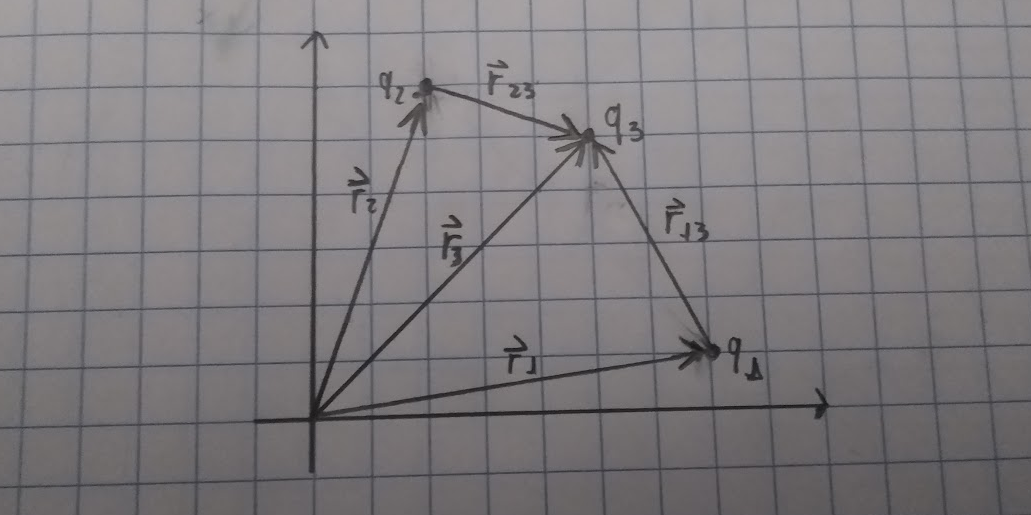 q₂
r⃗₂₃
q₃
r⃗₂
r⃗₃
r⃗₁₃
r⃗₁
q₁